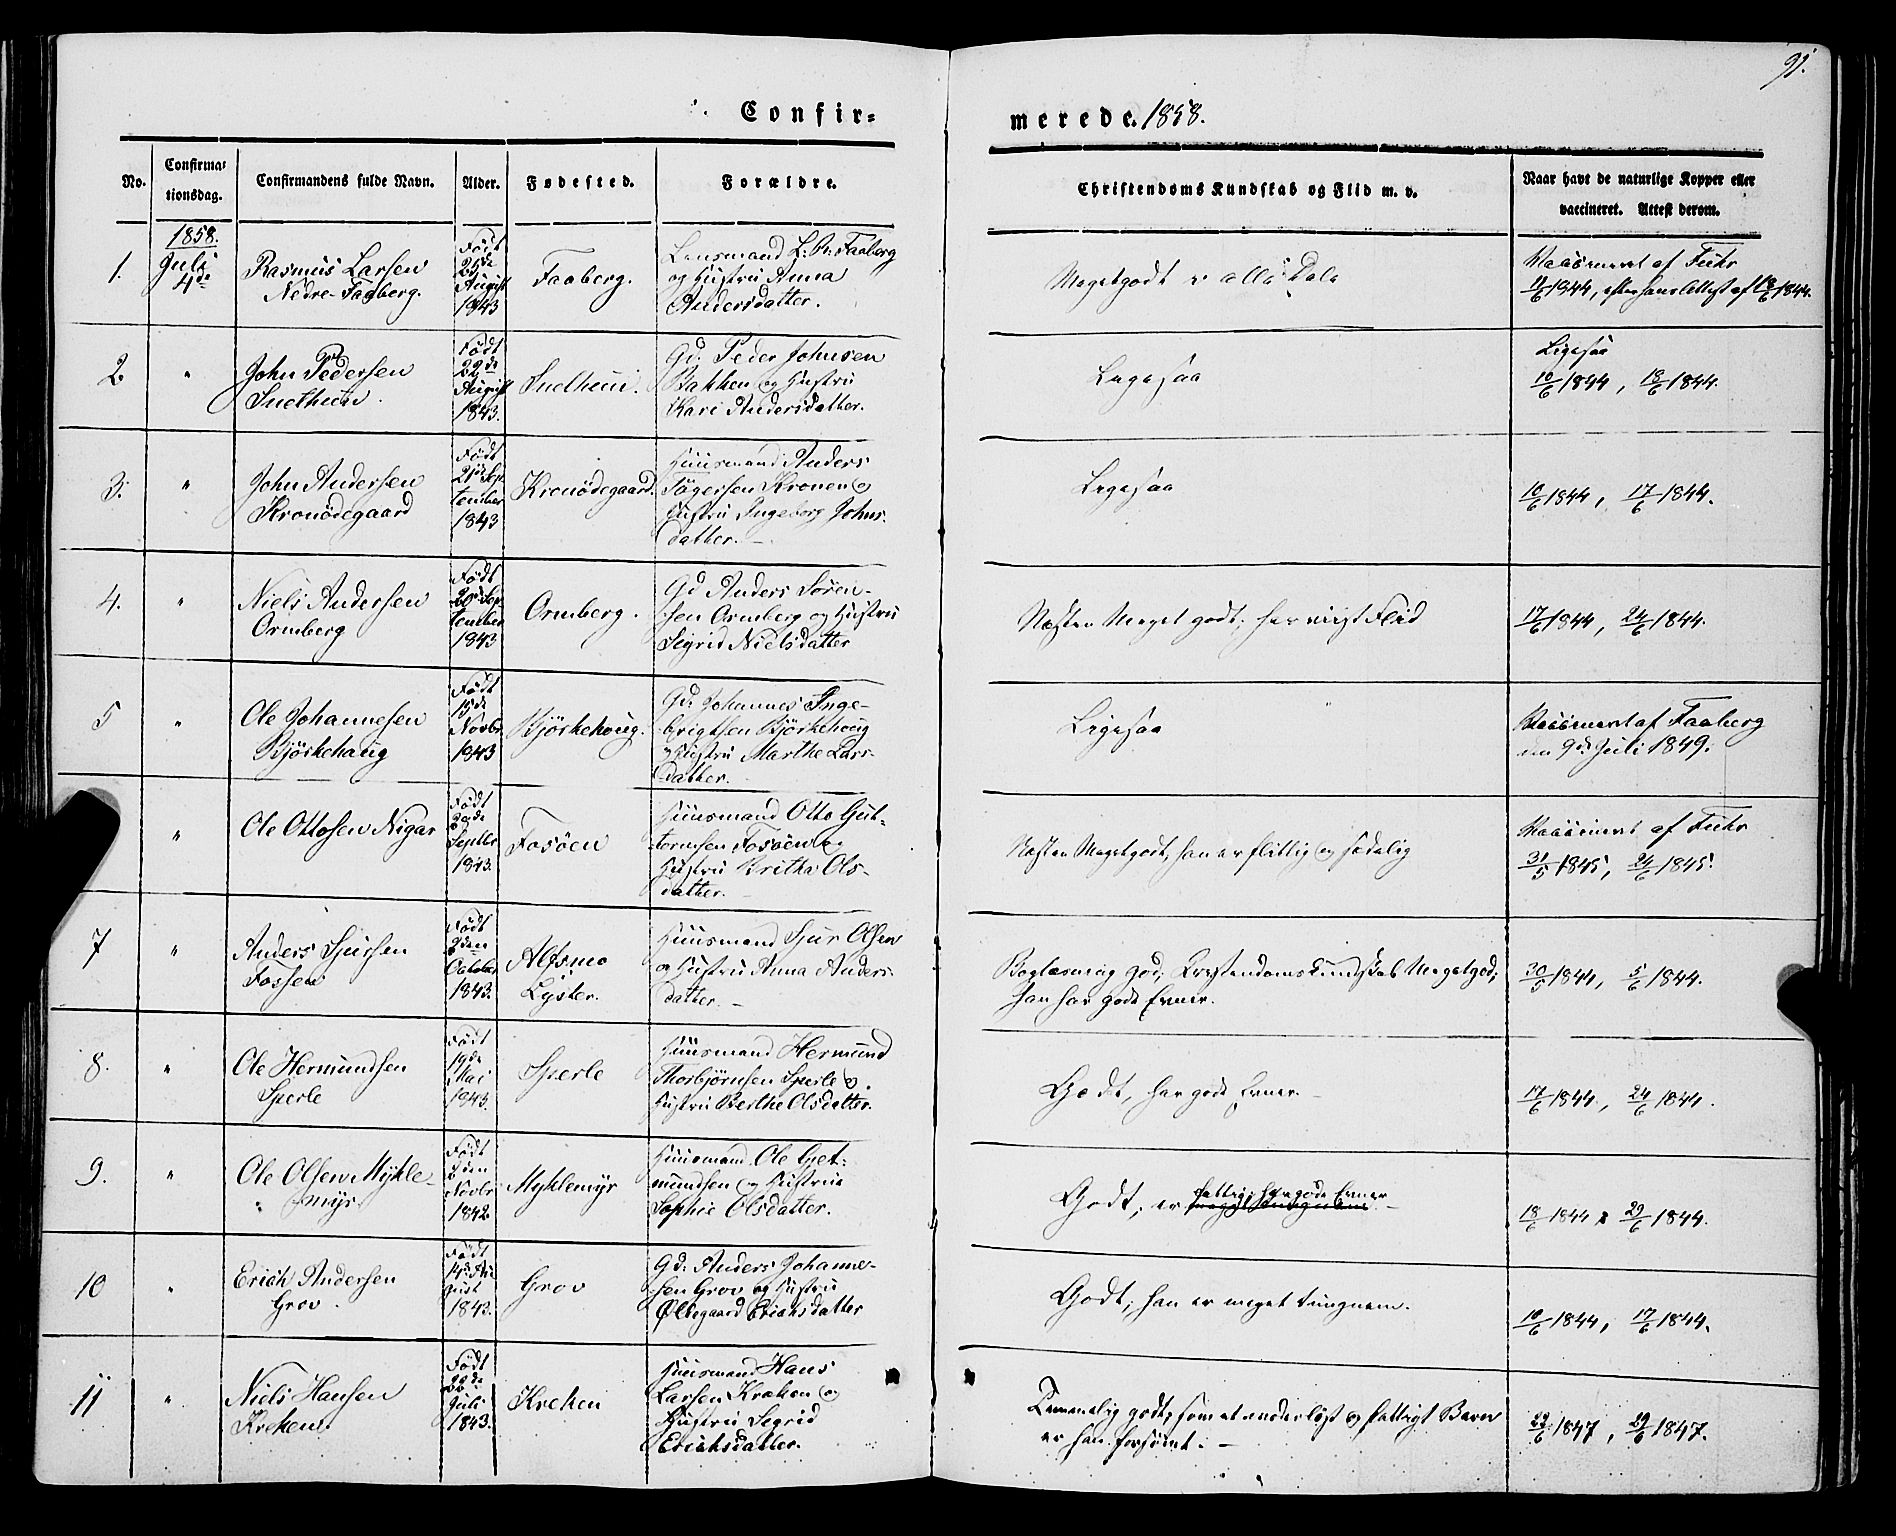 91.
Confir-
merede. 1858.
No.
Confirma-
tionsdag.
Confirmandens fulde Navn.
Alder.
Fødested.
Forældre.
Christendoms Kundskab og Flid m. v.
Naar havt de naturlige Kopper eller
vaccineret. Attest derom.
1858.
1.
Juli
4de
Rasmus Larsen
Nedre-Faaberg.
Født
August
1843
Faaberg.
Lensmand L. Faaberg
og Hustru Anna
Andersdatter.
Megetgodt i alle Dele
Vaccineret af Fuhr
11/6 1844, efter hans Attest af 18/6 1844.
2.
"
John Pedersen
Snethun.
Født
22de
August
1843.
Snethun.
Gd. Peder Johnsen
Bakken og Hustru
Kari Andersdatter.
Ligesaa
Ligesaa
10/6 1844, 18/6 1844.
3.
"
John Andersen
Kronødegaard
Født
21de Sep-
tember
1843
Kronødegaard.
Huusmand Anders
Tøgersen Kronen og
Hustru Ingeborg Johns-
datter.
Ligesaa
10/6 1844, 17/6 1844.
4.
"
Niels Andersen
Ormberg
Født
20de Sep-
tember
1843
Ormberg.
Gd Anders Søren-
sen Ormberg og Hustru
Sigrid Nielsdatter
Næsten Meget godt; har viist Flid
17/6 1844, 24/6 1844.
5
"
Ole Johannesen
Bjørkehaug
Født
15de
Novbr
1843
Bjørkehoug.
Gd. Johannes Inge-
brigtsen Bjørkehoug
og Hustru Marthe Lars-
datter.
Ligesaa
Vaccineret af Faaberg
den 9de Juli 1849.
"
Ole Ottosen Nigar
Født
Septbr
1843.
Fosøen
Huusmand Otto Gut-
tormsen Fosøen og
Hustru Britha Ols-
datter.
Næsten Megetgodt, han er flittig og sædelig
Vaccineret af Fuhr
31/5 1845, 24/6 1845.
7
"
Anders Sjursen
Fossen
Født
2den
October
1843.
Alsmo
Lyster.
Huusmand Sjur Olsen
og Hustru Anna Anders-
datter.
Boglæsning god; Cristendomskundskab Megetgod;
han har gode Evner.
30/5 1844, 5/6 1844.
8.
"
Ole Hermundsen
Sperle
Født
19de
Mai
1843.
Sperle
Huusmand Hermund
Thorbjørnsen Sperle og
Hustru Berthe Olsdatter.
Godt, har gode Evner.
17/6 1844, 24/6 1844.
9.
"
Ole Olsen Myhle-
" myr
Født
2den
Novbr
1842
Myhlemyr
Huusmand Ole Get-
mundsen og Hustrue
Sophie Olsdatter.
Godt, er fattig; har gode Evner
18/6 1844, 29/6 1844.
10
"
Erich Andersen
Grov.
Født
14de Au-
gust
1843.
Grov
Gd. Anders Johanne-
sen Grov og Hustru
Ollegaard Erichsdatter
Godt; han er meget tungnem.
10/6 1844, 17/6 1844.
11
"
Niels Hansen
Kreken
Født
22de
Juli
1843.
Kreken
Huusmand Hans
Larsen Kreken og
Hustru Segrid
Erichsdatter.
Temmelig godt, som et moderløst og fattigt Barn
er han forsømt.
22/6 1847, 29/6 1847.